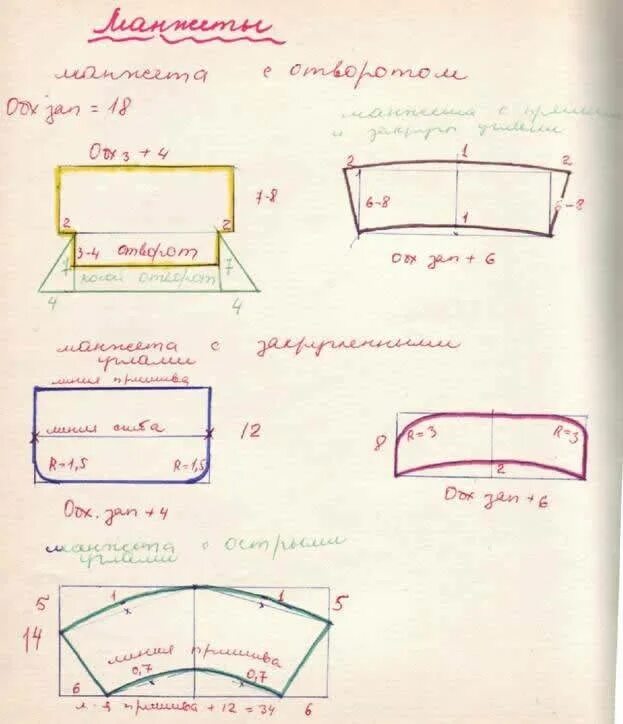 Манжеты
манжета с отворотом
Обх зап = 18
манжета с прямыми
и закругл углами
Обх з + 4
7-8
2
2
3-4 отворот
7
7
косой отворот
4
4
2
1
2
6-8
6-8
1
Обх зап + 6
манжета с закругленными
углами
линия пришива
линия сгиба
12
R=1,5
R=1,5
Обх. зап + 4
8
R=3
R=3
2
Обх зап + 6
манжета с острыми
углами
5
1
1
5
14
линия пришива
0,7
0,7
6
л-я пришива + 12 = 34
6